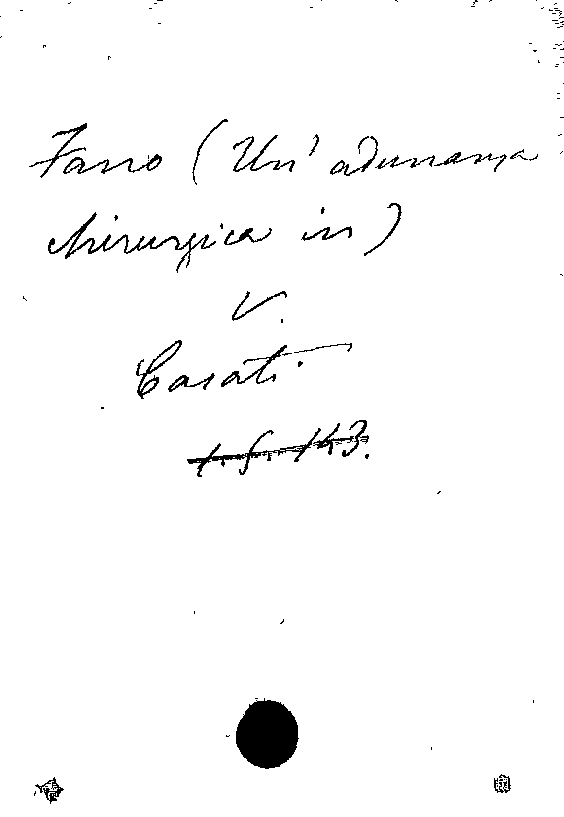 Fano (Un' adunanza
chirurgica in)
V.
Casati
1. f. 143.